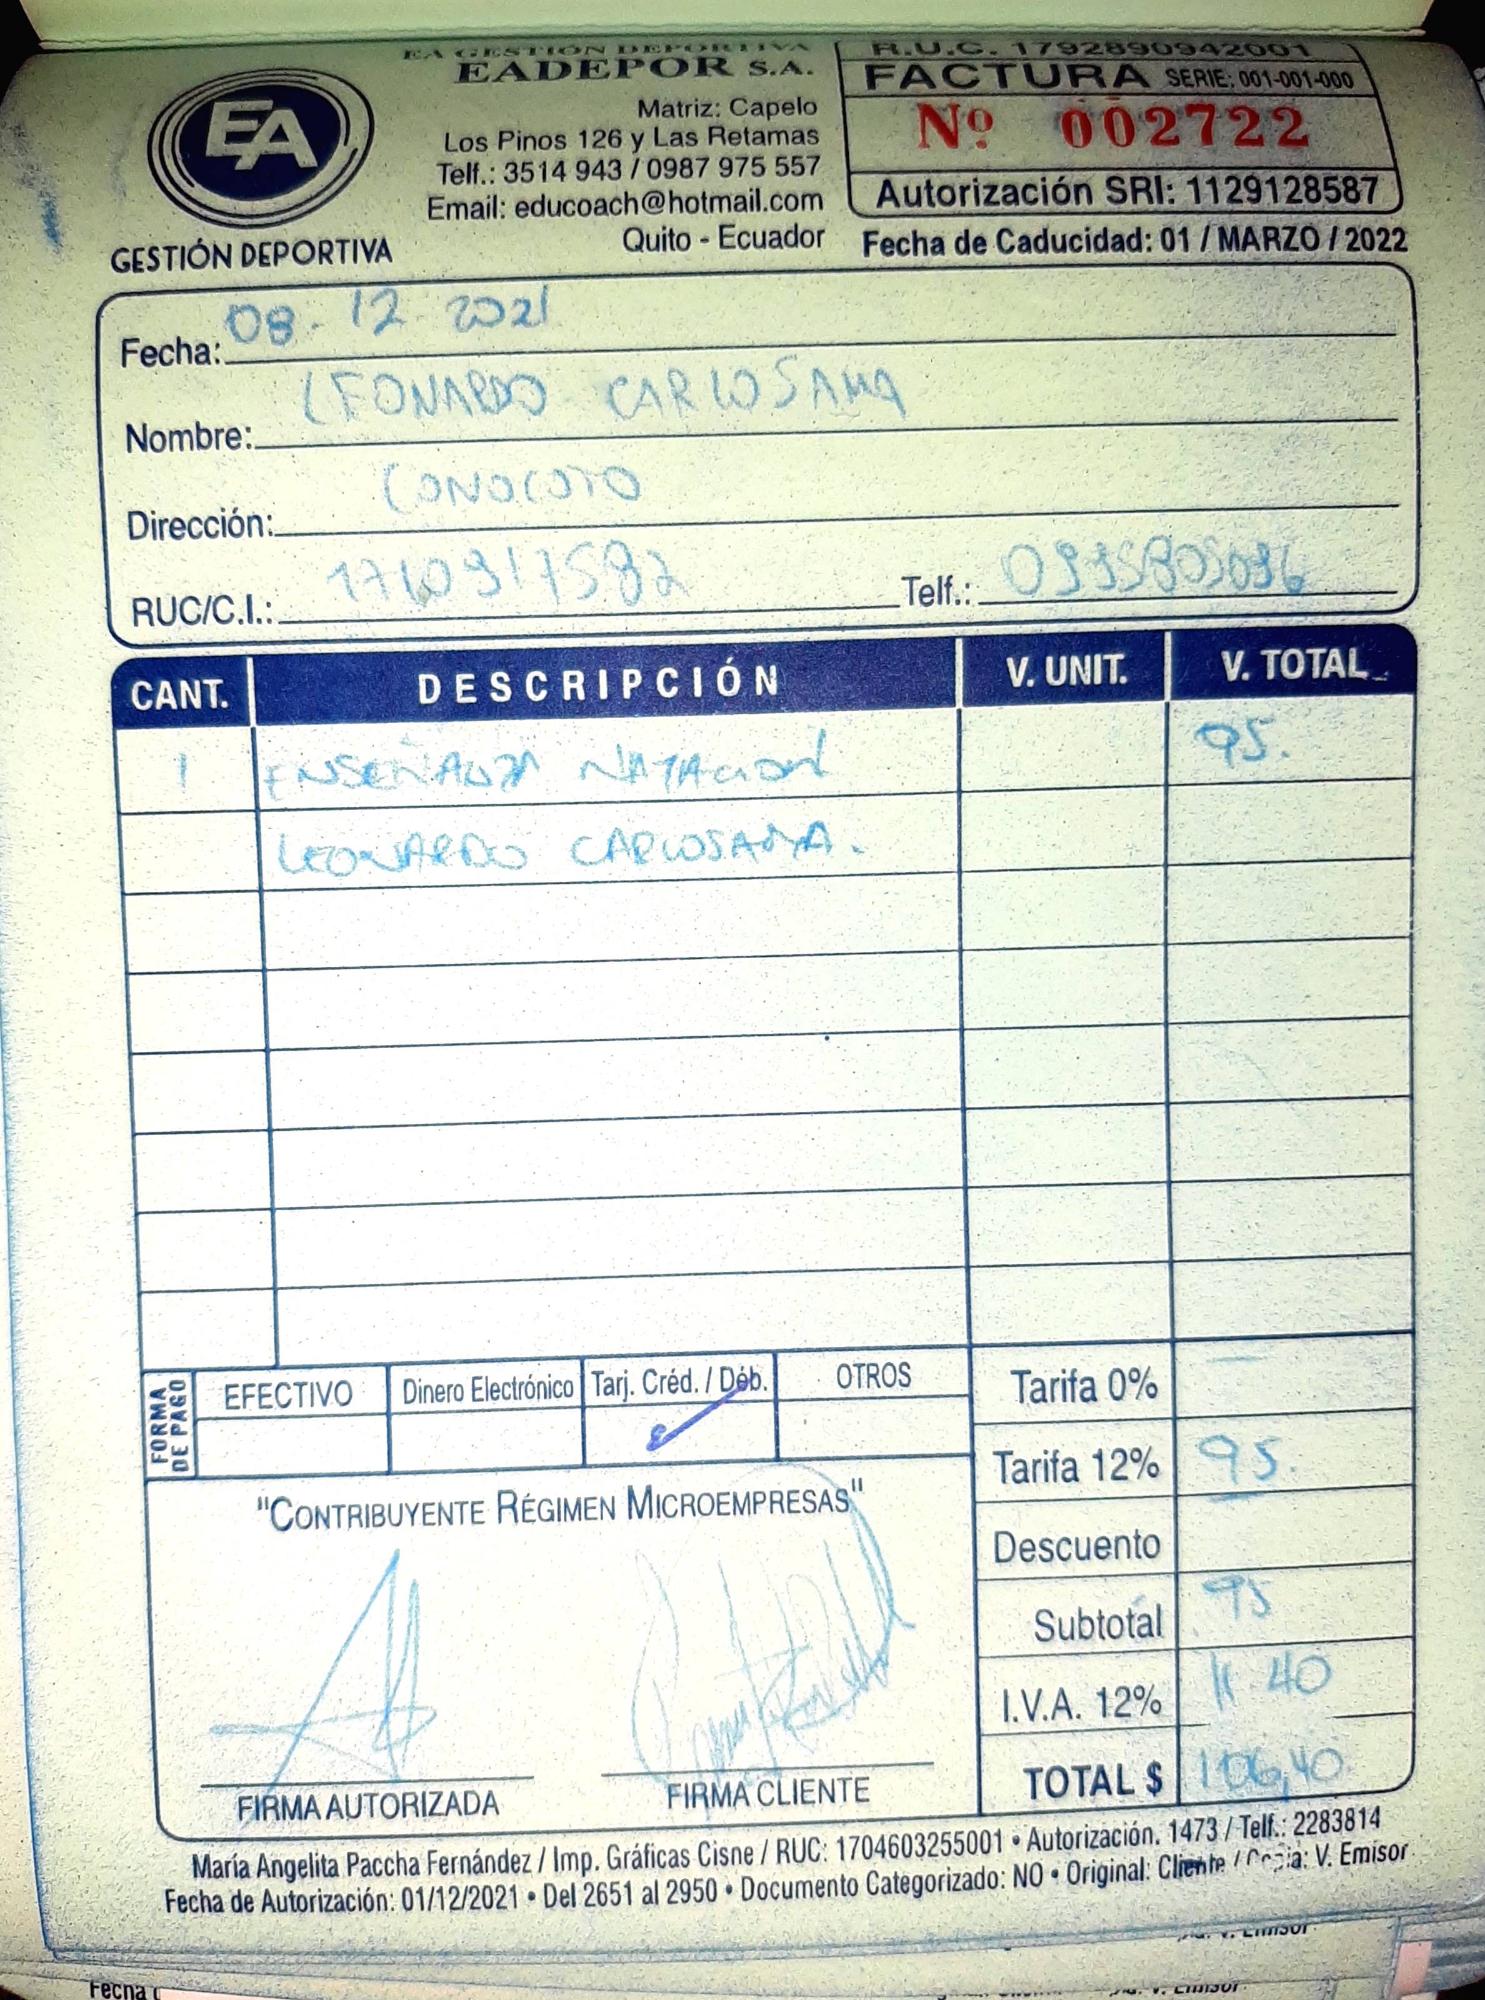 EA GESTIÓN DEPORTIVA
EADEPOR S.A.
Matriz: Capelo
Los Pinos 126 y Las Retamas
Telf.: 3514 943 / 0987 975 557
Email: educoach@hotmail.com
Quito - Ecuador
EA
GESTIÓN DEPORTIVA
R.U.C. 1792890942001
FACTURA SERIE: 001-001-000
Nº 002722
Autorización SRI: 1129128587
Fecha de Caducidad: 01 / MARZO / 2022
Fecha: 08 - 12 - 2021
Nombre: LEONARDO CARLOSAMA
Dirección: CONOCOTO
RUC/C.I.: 1710917582 Telf.:
CANT. DESCRIPCIÓN V. UNIT. V. TOTAL
1 ENSEÑANZA NATACION 95.
LEONARDO CARLOSAMA.
FORMA DE PAGO
EFECTIVO Dinero Electrónico Tarj. Créd. / Déb. OTROS
Tarifa 0% —
Tarifa 12% 95.
Descuento
Subtotal 95
I.V.A. 12% 11.40
TOTAL $ 106,40
"CONTRIBUYENTE RÉGIMEN MICROEMPRESAS"
FIRMA AUTORIZADA FIRMA CLIENTE
María Angelita Paccha Fernández / Imp. Gráficas Cisne / RUC: 1704603255001 • Autorización. 1473 / Telf.: 2283814
Fecha de Autorización: 01/12/2021 • Del 2651 al 2950 • Documento Categorizado: NO • Original: Cliente / Copia: V. Emisor
V. Emisor
Fecha
V. Emisor